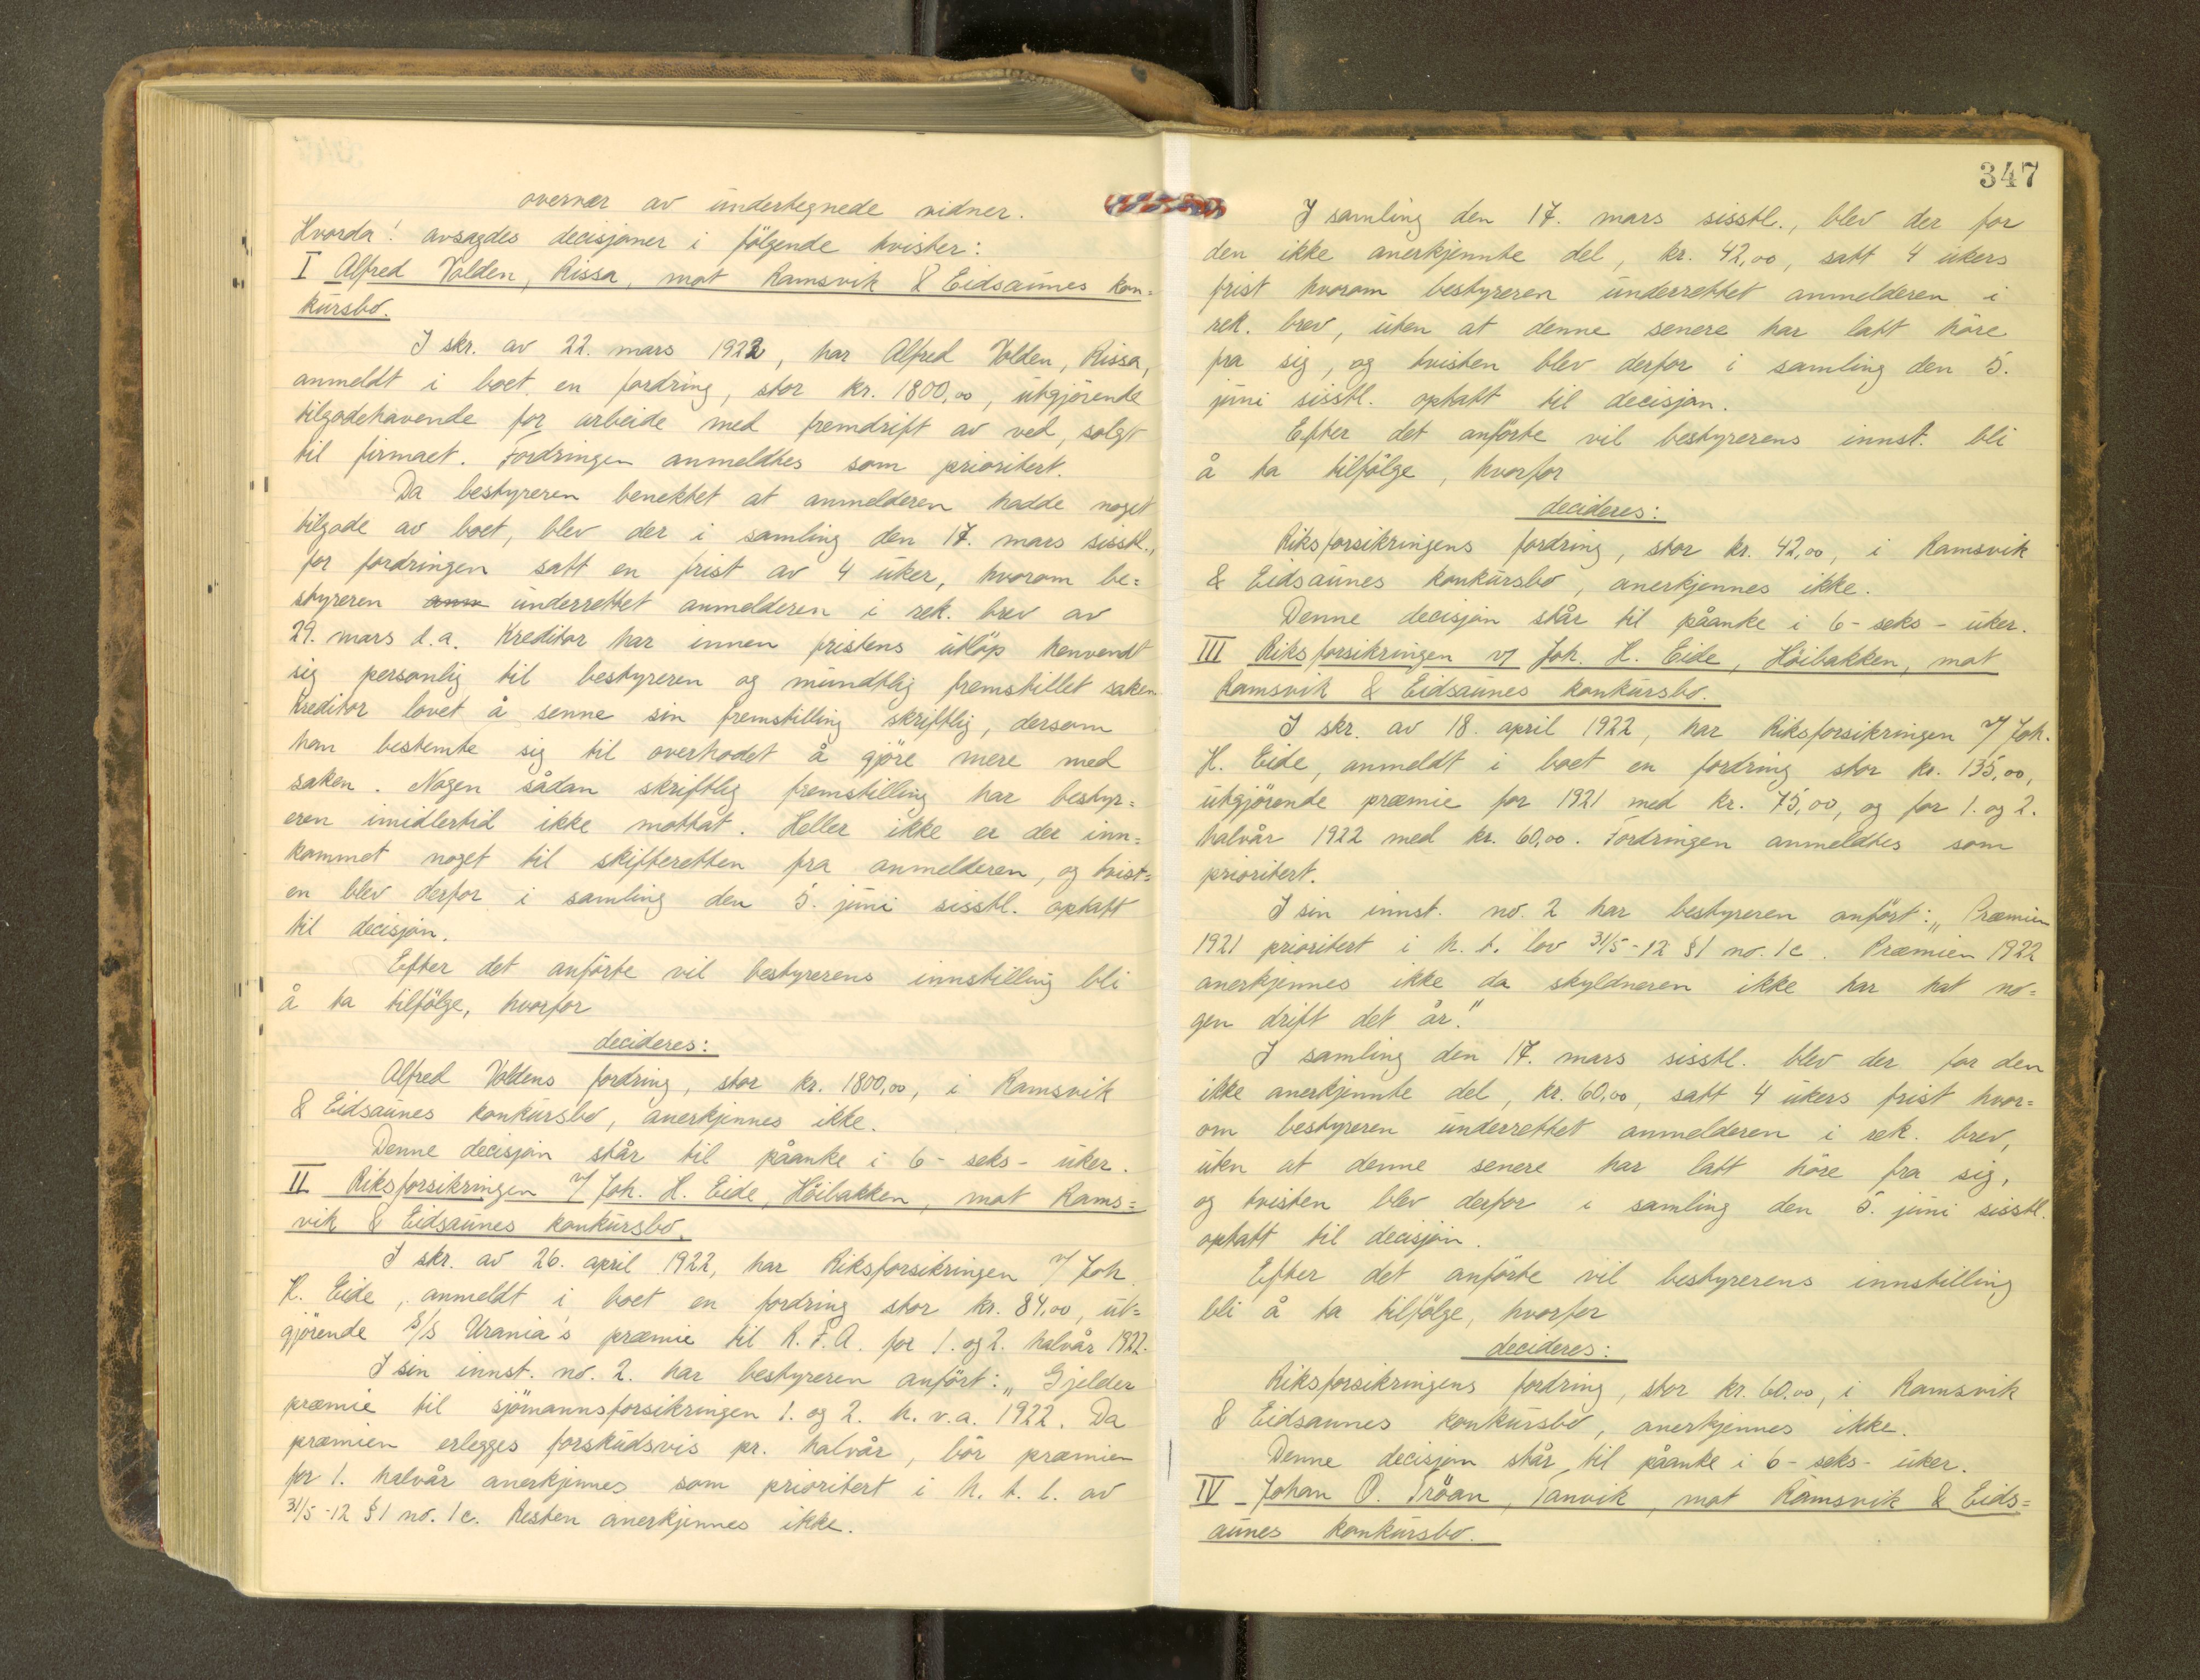 overvær av undertegnede vidner.
Hvorda! avsagdes decisjoner i følgende tvister:
I Alfred Volden, Rissa, mot Ramsvik & Eidsaunes kon=
kursbo.
I skr. av 22. mars 1922, har Alfred Volden, Rissa,
anmeldt i boet en fordring, stor kr. 1800,00, utgjørende
tilgodehavende for arbeide med fremdrift av ved, solgt
til firmaet. Fordringen anmeldtes som prioritert.
Da bestyreren benektet at anmelderen hadde noget
tilgode av boet, blev der i samling den 17. mars sisstl.,
for fordringen satt en frist av 4 uker, hvorom be=
styreren anm underrettet anmelderen i rek. brev av
29. mars d.a. Kreditor har innen fristens utløp henvendt
sig personlig til bestyreren og mundtlig fremstillet saken.
Kreditor lovet å senne sin fremstilling skriftlig, dersom
han bestemte sig til overhodet å gjøre mere med
saken. Nogen sådan skriftlig fremstilling har besty=
eren imidlertid ikke mottat. Heller ikke er der inn=
kommet noget til skifteretten fra anmelderen, og tvist=
en blev derfor i samling den 5. juni sisstl. optatt
til decisjon.
Efter det anførte vil bestyrerens innstilling bli
å ta tilfølge, hvorfor
decideres:
Alfred Voldens fordring, stor kr. 1800,00, i Ramsvik
& Eidsaunes konkursbo, anerkjennes ikke.
Denne decisjon står til påanke i 6 - seks - uker.
II Riksforsikringen v/ Joh. H. Eide, Höibakken, mot Rams=
vik & Eidsaunes konkursbo.
I skr. av 26. april 1922, har Riksforsikringen v/ Joh.
H. Eide, anmeldt i boet en fordring stor kr. 84,00, ut=
gjørende s/s Urania's præmie til R.F.A. for 1. og 2. halvår 1922.
I sin innst. no. 2. har bestyreren anført: „Gjelder
præmie til sjömannsforsikringen 1. og 2. h.v.a. 1922. Da
præmien erlegges forskudsvis pr. halvår, bör præmien
for 1. halvår anerkjennes som prioritert i h.t.l. av
31/5-12 §1 no. 1c. Resten anerkjennes ikke.
347
I samling den 17. mars sisstl., blev der for
den ikke anerkjennte del, kr. 42,00, satt 4 ukers
frist hvorom bestyreren underrettet anmelderen i
rek. brev, uten at denne senere har latt höre
fra sig, og tvisten blev derfor i samling den 5.
juni sisstl. optatt til decisjon.
Efter det anførte vil bestyrerens innst. bli
å ta tilfølge, hvorfor
decideres:
Riksforsikringens fordring, stor kr. 42,00, i Ramsvik
& Eidsaunes konkursbo, anerkjennes ikke.
Denne decisjon står til påanke i 6 - seks - uker.
III Riksforsikringen v/ Joh. H. Eide, Höibakken, mot
Ramsvik & Eidsaunes konkursbo.
I skr. av 18. april 1922, har Riksforsikringen v/ Joh.
H. Eide, anmeldt i boet en fordring stor kr. 135,00,
utgjørende præmie for 1921 med kr. 75,00, og for 1. og 2.
halvår 1922 med kr. 60,00. Fordringen anmeldtes som
prioritert.
I sin innst. no. 2 har bestyreren anført: „Præmien
1921 prioritert i h.t. lov 31/5-12 §1 no. 1c. Præmien 1922
anerkjennes ikke da skyldneren ikke har hat no=
gen drift det år."
I samling den 17. mars sisstl. blev der for den
ikke anerkjennte del, kr. 60,00, satt 4 ukers frist hvor=
om bestyreren underrettet anmelderen i rek. brev,
uten at denne senere har latt höre fra sig,
og tvisten blev derfor i samling den 5. juni sisstl.
optatt til decisjon.
Efter det anførte vil bestyrerens innstilling
bli å ta tilfølge, hvorfor
decideres:
Riksforsikringens fordring, stor kr. 60,00, i Ramsvik
& Eidsaunes konkursbo, anerkjennes ikke.
Denne decisjon står til påanke i 6 - seks - uker.
IV - Johan O. Tröan, Tanvik, mot Ramsvik & Eids=
aunes konkursbo.